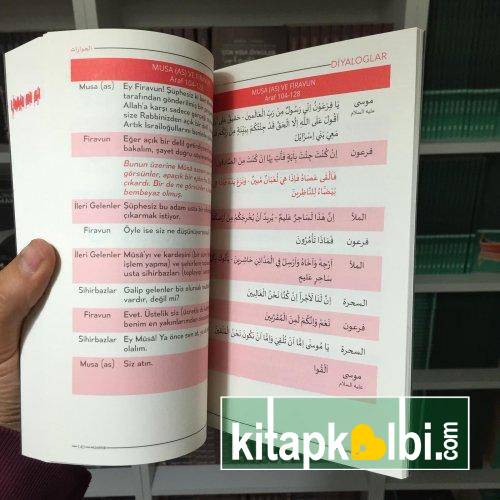 الحوارات
MUSA (AS) VE FİRAVUN
Araf 104-128
Musa (as) Ey Firavun! Şüphesiz ki ben
tarafından gönderilmiş bir
Allah'a karşı sadece gerçeği
size Rabbinizden açık bir
Artık İsrailoğullarını
Firavun Eğer açık bir delil getirdiysen
bakalım, şayet doğru
Bunun üzerine Mûsâ
görsünler, apaçık bir
çıkardı. Bir de ne görsünler
bembeyaz olmuş.
İleri Gelenler Şüphesiz bu adam usta bir
çıkarmak istiyor.
Firavun Öyle ise siz ne düşünüyorsunuz
İleri Gelenler Mûsâ'yı ve kardeşini (bir
işlem yapma) ve şehirlere
usta sihirbazları (toplayıp)
Sihirbazlar Galip gelenler biz olursak
vardır, değil mi?
Firavun Evet. Üstelik siz
benim en yakınlarımdan
Sihirbazlar Ey Mûsâ! Ya önce sen at, ya
olalım.
Musa (as) Siz atın.
DİYALOGLAR
MUSA (AS) VE FİRAVUN
Araf 104-128
موسى عليه السلام
يَا فِرْعَوْنُ إِنِّي رَسُولٌ مِن رَبِّ الْعَالَمِينَ - حَقِيقٌ
أَقُولَ عَلَى اللَّهِ إِلَّا الْحَقَّ قَدْ جِئْتُكُمْ بِبَيِّنَةٍ مِن رَبِّكُمْ
مَعِيَ بَنِي إِسْرَائِيلَ
فرعون إِن كُنْتَ جِئْتَ بِآيَةٍ فَأْتِ بِهَا إِن كُنْتَ مِنَ الصَّادِقِينَ
فَأَلْقَى عَصَاهُ فَإِذَا هِيَ ثُعْبَانٌ مُبِينٌ - وَنَزَعَ يَدَهُ
بَيْضَاءُ لِلنَّاظِرِينَ
الملأ إِنَّ هَذَا لَسَاحِرٌ عَلِيمٌ - يُرِيدُ أَنْ يُخْرِجَكُمْ مِنْ
فرعون فَمَاذَا تَأْمُرُونَ
الملأ أَرْجِهْ وَأَخَاهُ وَأَرْسِلْ فِي الْمَدَائِنِ حَاشِرِينَ - يَأْتُوكَ بِكُلِّ
سَاحِرٍ عَلِيمٍ
السحرة إِنَّ لَنَا لَأَجْرًا إِنْ كُنَّا نَحْنُ الْغَالِبِينَ
فرعون نَعَمْ وَإِنَّكُمْ لَمِنَ الْمُقَرَّبِينَ
السحرة يَا مُوسَى إِمَّا أَنْ تُلْقِيَ وَإِمَّا أَنْ نَكُونَ نَحْنُ الْمُلْقِينَ
موسى عليه السلام
أَلْقُوا
kitapkalbi.com